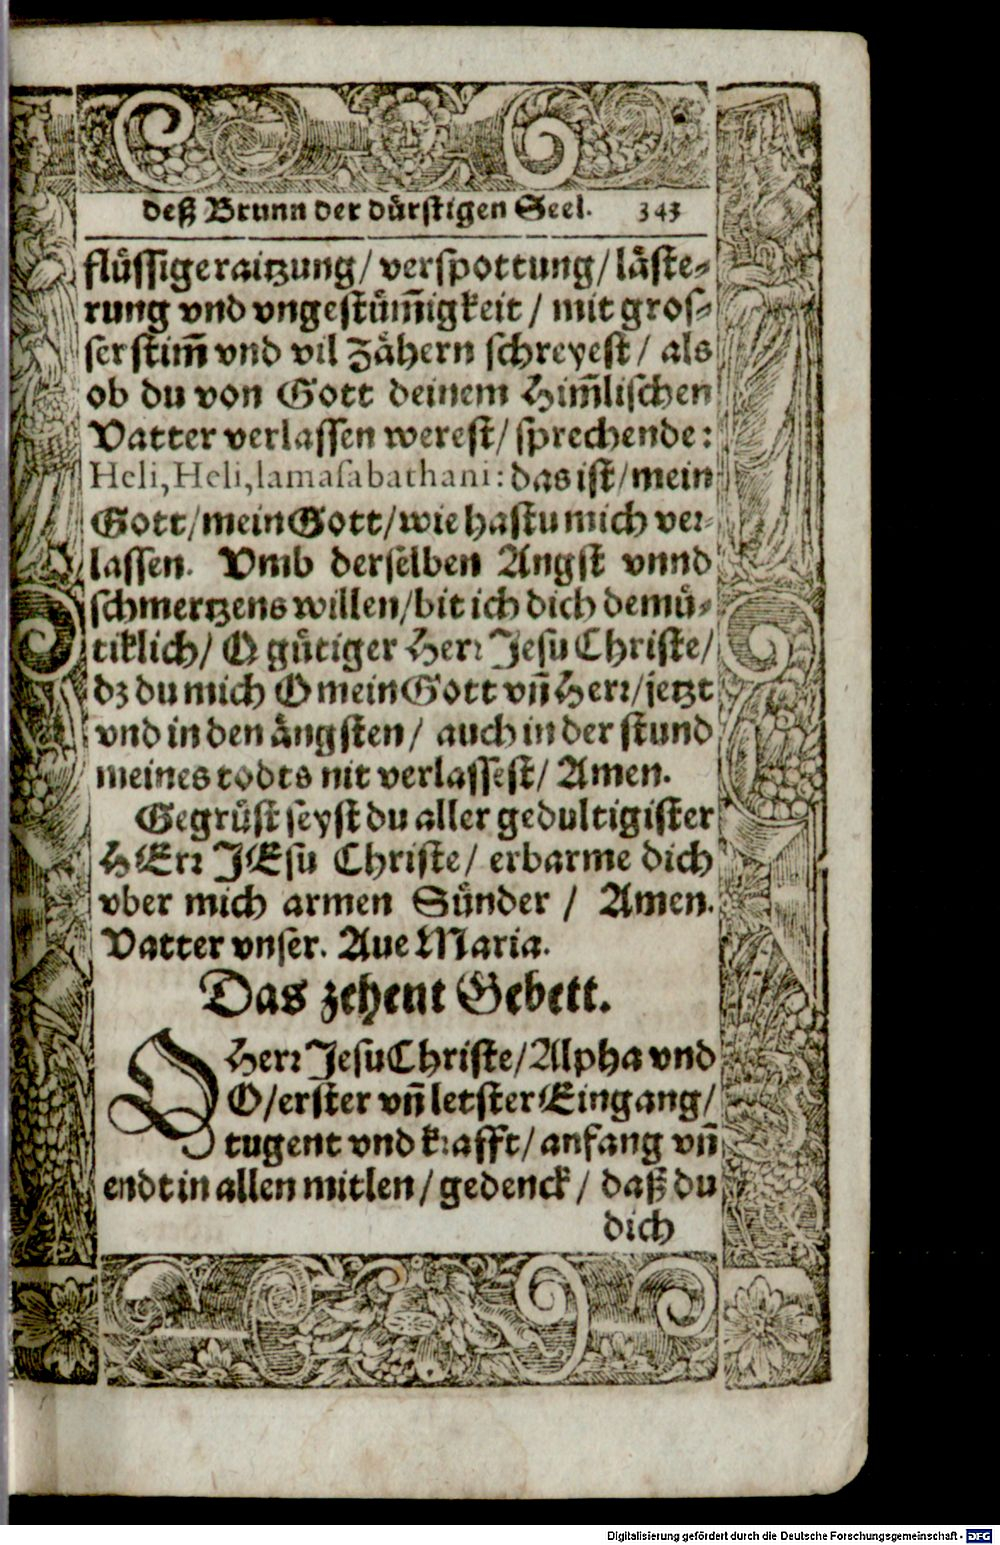 deß Brunn der dürstigen Seel. 343
flüssigeraitzung/ verspottung/ läste⸗
rung vnd vngestüm̃igkeit / mit gros⸗
ser stim̃ vnd vil Zähern schreyest / als
ob du von Gott deinem Him̃lischen
Vatter verlassen werest/ sprechende:
Heli, Heli, lamasabathani: das ist/ mein
Gott/ mein Gott/ wie hastu mich ver⸗
lassen. Vmb derselben Angst vnnd
schmertzens willen/ bit ich dich demü⸗
tiklich/ O gütiger Herr Jesu Christe/
dz du mich O mein Gott vñ Herr/ jetzt
vnd in den ängsten / auch in der stund
meines todts nit verlassest/ Amen.
Gegrüst seyst du aller gedultigister
HErr JEsu Christe/ erbarme dich
vber mich armen Sünder / Amen.
Vatter vnser. Aue Maria.
Das zehent Gebett.
O Herr Jesu Christe/ Alpha vnd
O/ erster vñ letster Eingang/
tugent vnd krafft/ anfang vñ
endt in allen mitlen / gedenck / daß du
dich
Digitalisierung gefördert durch die Deutsche Forschungsgemeinschaft - DFG